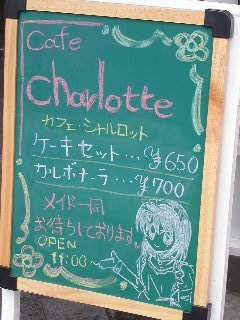 Cafe
Charlotte
カフェ・シャルロット
ケーキセット・・・¥650
カルボナーラ・・・¥700
メイド一同
お待ちしております。
OPEN
11:00〜